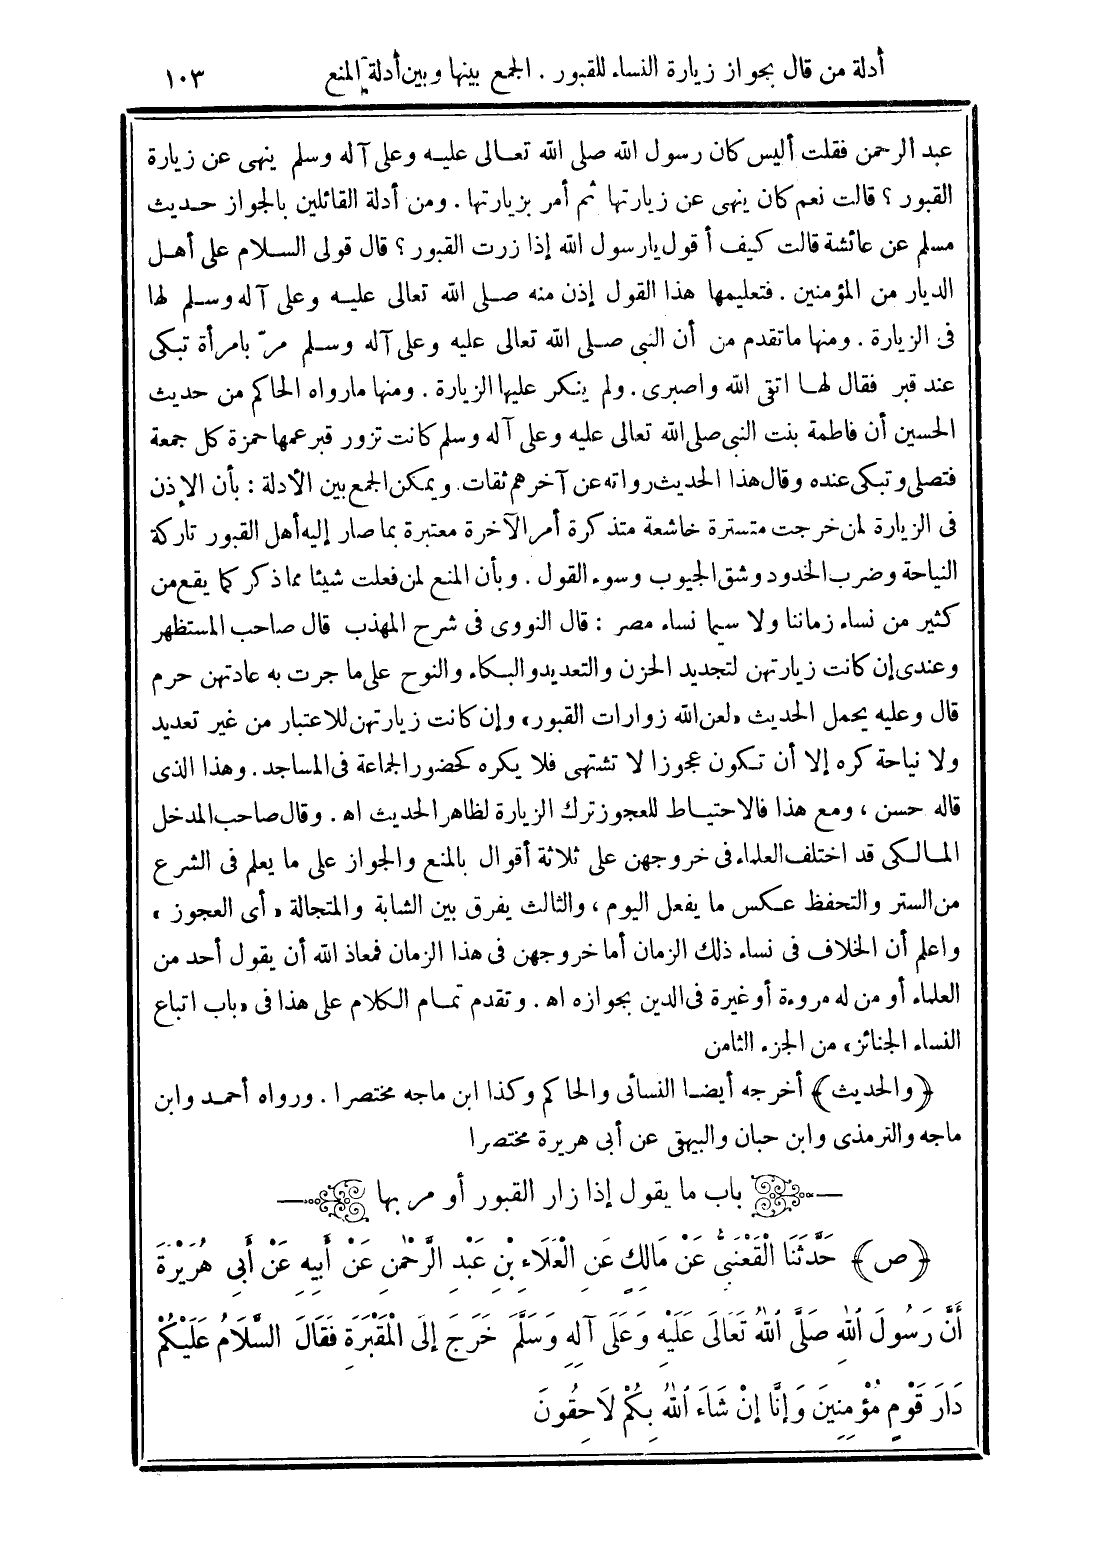 أدلة من قال بجواز زيارة النساء للقبور . الجمع بينها وبين أدلة المنع ١٠٣
عبد الرحمن فقلت أليس كان رسول الله صلى الله تعالى عليه وعلى آله وسلم ينهى عن زيارة
القبور ؟ قالت نعم كان ينهى عن زيارتها ثم أمر بزيارتها . ومن أدلة القائلين بالجواز حديث
مسلم عن عائشة قالت كيف أقول يارسول الله إذا زرت القبور ؟ قال قولى السلام على أهل
الديار من المؤمنين . فتعليمها هذا القول إذن منه صلى الله تعالى عليه وعلى آله وسلم لها
فى الزيارة . ومنها ماتقدم من أن النبي صلى الله تعالى عليه وعلى آله وسلم مرّ بامرأة تبكى
عند قبر فقال لها اتقى الله واصبرى . ولم ينكر عليها الزيارة . ومنها مارواه الحاكم من حديث
الحسين أن فاطمة بنت النبي صلى الله تعالى عليه وعلى آله وسلم كانت تزور قبر عمها حمزة كل جمعة
فتصلى وتبكى عنده وقال هذا الحديث رواته عن آخرهم ثقات. ويمكن الجمع بين الأدلة : بأن الإذن
فى الزيارة لمن خرجت متسترة خاشعة متذكرة أمر الآخرة معتبرة بما صار إليه أهل القبور تاركة
النياحة وضرب الخدود وشق الجيوب وسوء القول . وبأن المنع لمن فعلت شيئا مما ذكر كما يقع من
كثير من نساء زماننا ولا سيما نساء مصر : قال النووى فى شرح المهذب قال صاحب المستظهر
وعندى إن كانت زيارتهن لتجديد الحزن والتعديد والبكاء والنوح على ما جرت به عادتهن حرم
قال وعليه يحمل الحديث «لعن الله زوارات القبور» وإن كانت زيارتهن للاعتبار من غير تعديد
ولا نياحة كره إلا أن تكون عجوزا لا تشتهى فلا يكره كحضور الجماعة فى المساجد . وهذا الذى
قاله حسن ، ومع هذا فالاحتياط للعجوز ترك الزيارة لظاهر الحديث اه . وقال صاحب المدخل
المالكى قد اختلف العلماء فى خروجهن على ثلاثة أقوال بالمنع والجواز على ما يعلم فى الشرع
من الستر والتحفظ عكس ما يفعل اليوم ، والثالث يفرق بين الشابة والمتجالة «أى العجوز»
واعلم أن الخلاف فى نساء ذلك الزمان أما خروجهن فى هذا الزمان فمعاذ الله أن يقول أحد من
العلماء أو من له مروءة أو غيرة فى الدين بجوازه اه . وتقدم تمام الكلام على هذا فى «باب اتباع
النساء الجنائز» من الجزء الثامن
﴿والحديث﴾ أخرجه أيضا النسائى والحاكم وكذا ابن ماجه مختصرا . ورواه أحمد وابن
ماجه والترمذى وابن حبان والبيهقى عن أبى هريرة مختصرا
باب ما يقول إذا زار القبور أو مر بها
﴿ص﴾ حَدَّثَنَا الْقَعْنَبِيُّ عَنْ مَالِكٍ عَنِ الْعَلَاءِ بْنِ عَبْدِ الرَّحْمٰنِ عَنْ أَبِيهِ عَنْ أَبِى هُرَيْرَةَ
أَنَّ رَسُولَ اللهِ صَلَّى اللهُ تَعَالَى عَلَيْهِ وَعَلَى آلِهِ وَسَلَّمَ خَرَجَ إِلَى الْمَقْبَرَةِ فَقَالَ السَّلَامُ عَلَيْكُمْ
دَارَ قَوْمٍ مُؤْمِنِينَ وَإِنَّا إِنْ شَاءَ اللهُ بِكُمْ لَاحِقُونَ